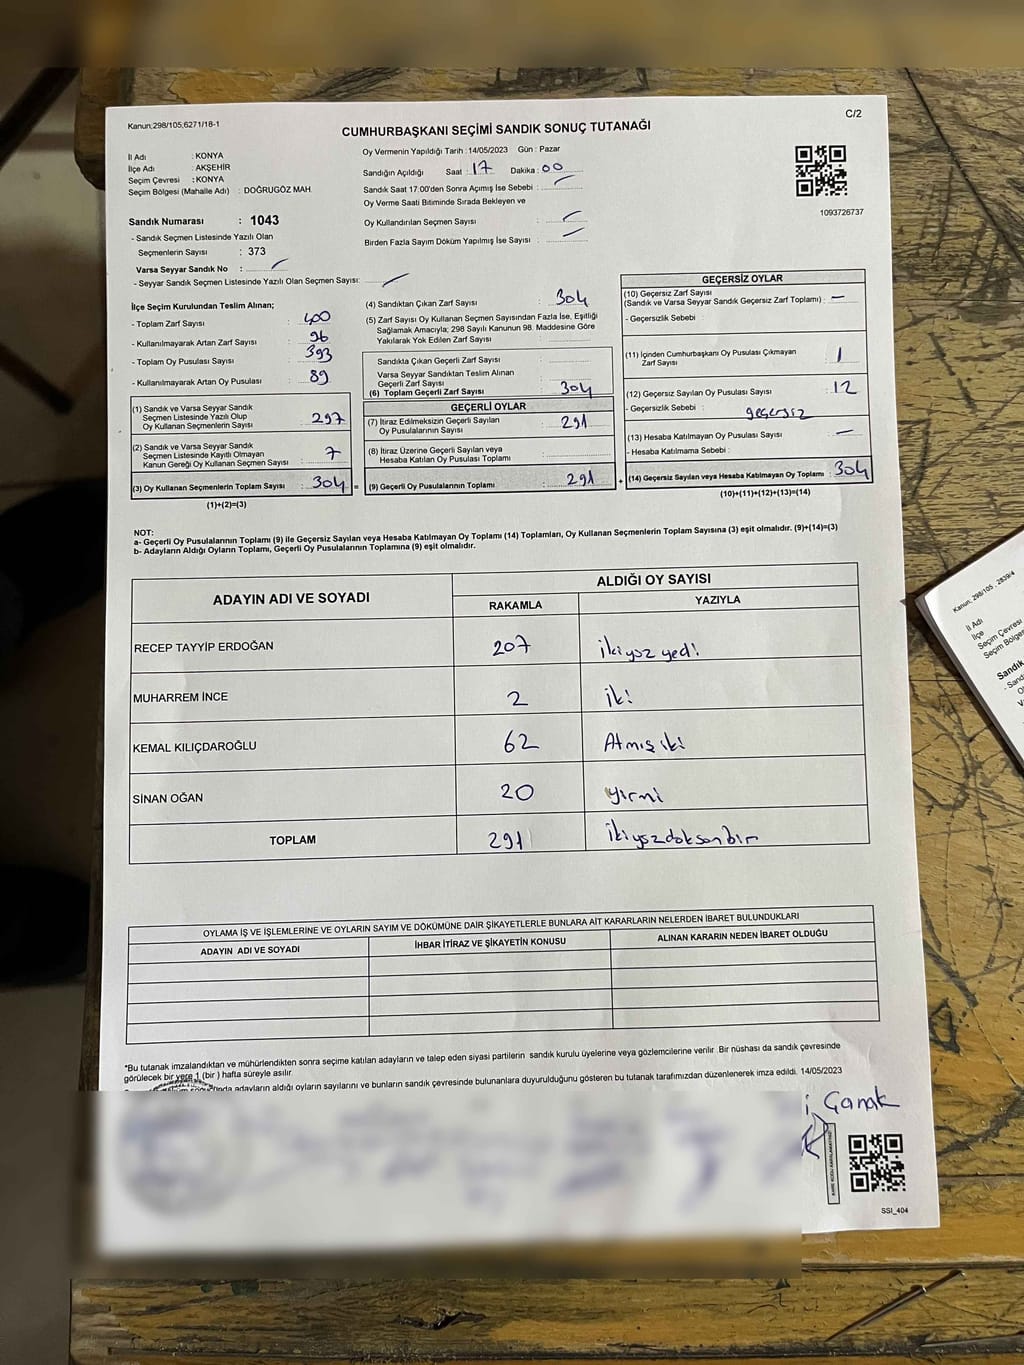 Kanun;298/105,6271/18-1
C/2
CUMHURBAŞKANI SEÇİMİ SANDIK SONUÇ TUTANAĞI
İl Adı : KONYA
İlçe Adı : AKŞEHİR
Seçim Çevresi : KONYA
Seçim Bölgesi (Mahalle Adı) : DOĞRUGÖZ MAH.
Sandık Numarası : 1043
- Sandık Seçmen Listesinde Yazılı Olan
Seçmenlerin Sayısı : 373
Varsa Seyyar Sandık No :
- Seyyar Sandık Seçmen Listesinde Yazılı Olan Seçmen Sayısı:
Oy Vermenin Yapıldığı Tarih : 14/05/2023 Gün : Pazar
Sandığın Açıldığı Saat : 17 Dakika : 00
Sandık Saat 17:00'den Sonra Açımış İse Sebebi :
Oy Verme Saati Bitiminde Sırada Bekleyen ve
Oy Kullandırılan Seçmen Sayısı :
Birden Fazla Sayım Döküm Yapılmış İse Sayısı :
1093726737
İlçe Seçim Kurulundan Teslim Alınan;
- Toplam Zarf Sayısı : 400
- Kullanılmayarak Artan Zarf Sayısı : 96
- Toplam Oy Pusulası Sayısı : 393
- Kullanılmayarak Artan Oy Pusulası : 89
(1) Sandık ve Varsa Seyyar Sandık
Seçmen Listesinde Yazılı Olup
Oy Kullanan Seçmenlerin Sayısı : 297
(2) Sandık ve Varsa Seyyar Sandık
Seçmen Listesinde Kayıtlı Olmayan
Kanun Gereği Oy Kullanan Seçmen Sayısı : 7
(3) Oy Kullanan Seçmenlerin Toplam Sayısı : 304 =
(1)+(2)=(3)
(4) Sandıktan Çıkan Zarf Sayısı : 304
(5) Zarf Sayısı Oy Kullanan Seçmen Sayısından Fazla İse, Eşitliği
Sağlamak Amacıyla; 298 Sayılı Kanunun 98. Maddesine Göre
Yakılarak Yok Edilen Zarf Sayısı :
Sandıkta Çıkan Geçerli Zarf Sayısı :
Varsa Seyyar Sandıktan Teslim Alınan
Geçerli Zarf Sayısı :
(6) Toplam Geçerli Zarf Sayısı : 304
GEÇERLİ OYLAR
(7) İtiraz Edilmeksizin Geçerli Sayılan
Oy Pusulalarının Sayısı : 291
(8) İtiraz Üzerine Geçerli Sayılan veya
Hesaba Katılan Oy Pusulası Toplamı :
(9) Geçerli Oy Pusulalarının Toplamı : 291 +
GEÇERSİZ OYLAR
(10) Geçersiz Zarf Sayısı
(Sandık ve Varsa Seyyar Sandık Geçersiz Zarf Toplamı) : —
- Geçersizlik Sebebi :
(11) İçinden Cumhurbaşkanı Oy Pusulası Çıkmayan
Zarf Sayısı : 1
(12) Geçersiz Sayılan Oy Pusulası Sayısı : 12
- Geçersizlik Sebebi : geçersiz
(13) Hesaba Katılmayan Oy Pusulası Sayısı : —
- Hesaba Katılmama Sebebi :
(14) Geçersiz Sayılan veya Hesaba Katılmayan Oy Toplamı : 304
(10)+(11)+(12)+(13)=(14)
NOT:
a- Geçerli Oy Pusulalarının Toplamı (9) ile Geçersiz Sayılan veya Hesaba Katılmayan Oy Toplamı (14) Toplamları, Oy Kullanan Seçmenlerin Toplam Sayısına (3) eşit olmalıdır. (9)+(14)=(3)
b- Adayların Aldığı Oyların Toplamı, Geçerli Oy Pusulalarının Toplamına (9) eşit olmalıdır.
ADAYIN ADI VE SOYADI ALDIĞI OY SAYISI
RAKAMLA YAZIYLA
RECEP TAYYİP ERDOĞAN 207 ikiyüz yedi
MUHARREM İNCE 2 iki
KEMAL KILIÇDAROĞLU 62 Atmış iki
SİNAN OĞAN 20 yirmi
TOPLAM 291 ikiyüzdoksanbir
OYLAMA İŞ VE İŞLEMLERİNE VE OYLARIN SAYIM VE DÖKÜMÜNE DAİR ŞİKAYETLERLE BUNLARA AİT KARARLARIN NELERDEN İBARET BULUNDUKLARI
ADAYIN ADI VE SOYADI İHBAR İTİRAZ VE ŞİKAYETİN KONUSU ALINAN KARARIN NEDEN İBARET OLDUĞU
*Bu tutanak imzalandıktan ve mühürlendikten sonra seçime katılan adayların ve talep eden siyasi partilerin sandık kurulu üyelerine veya gözlemcilerine verilir. Bir nüshası da sandık çevresinde
görülecek bir yere 1 (bir ) hafta süreyle asılır.
adayların aldığı oyların sayılarını ve bunların sandık çevresinde bulunanlara duyurulduğunu gösteren bu tutanak tarafımızdan düzenlenerek imza edildi. 14/05/2023
Çanak
SSI_404
Kanun; 298/105 , 2839/4
İl Adı
İlçe
Seçim Çevresi
Seçim Bölges
Sandık
- Sand